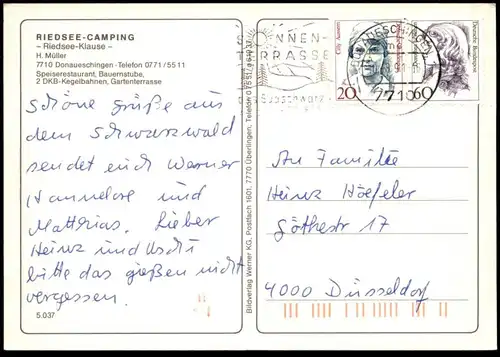 RIEDSEE-CAMPING
– Riedsee-Klause –
H. Müller
7710 Donaueschingen · Telefon 0771/5511
Speiserestaurant, Bauernstube,
2 DKB-Kegelbahnen, Gartenterrasse
schöne grüße aus
dem Schwarzwald
sendet euch Werner
Hannelore und
Matthias. Lieber
Heinz und Uschi
bitte das gießen nicht
vergessen.
5.037
Bildverlag Werner KG, Postfach 1601, 7770 Überlingen, Telefon
NNEN-
RRASSE
7710
Cilly Aussem
20
Deutsche Bundespost
60
An Familie
Heinz Höfeler
Göthestr 17
4000 Düsseldorf